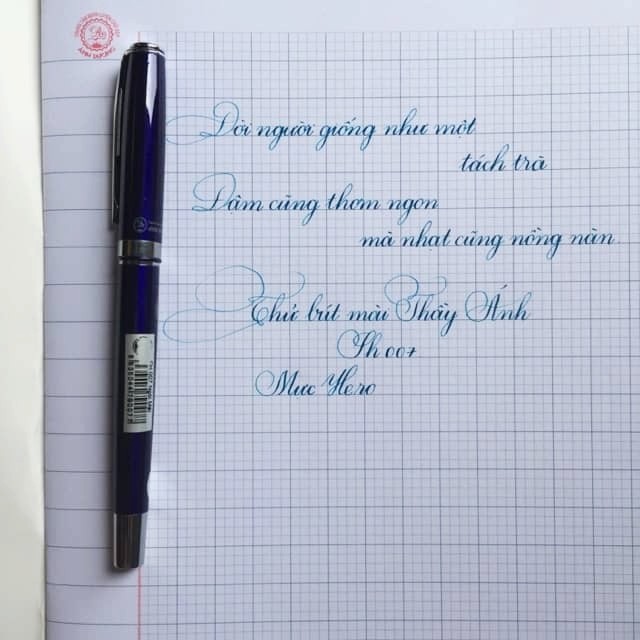 Đời người giống như một
tách trà
Đậm cũng thơm ngon
mà nhạt cũng nồng nàn.
Thử bút mài Thầy Ánh
Sh 007
Mực Hero
ÁNH DƯƠNG